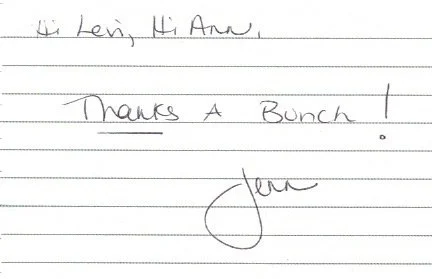 Hi Levi, Hi Ann.
Thanks A Bunch!
Jenn